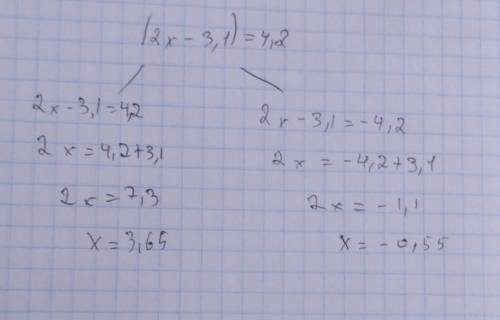 |2x - 3,1| = 4,2
2x - 3,1 = 4,2
2x = 4,2 + 3,1
2x = 7,3
x = 3,65
2x - 3,1 = -4,2
2x = -4,2 + 3,1
2x = -1,1
x = -0,55